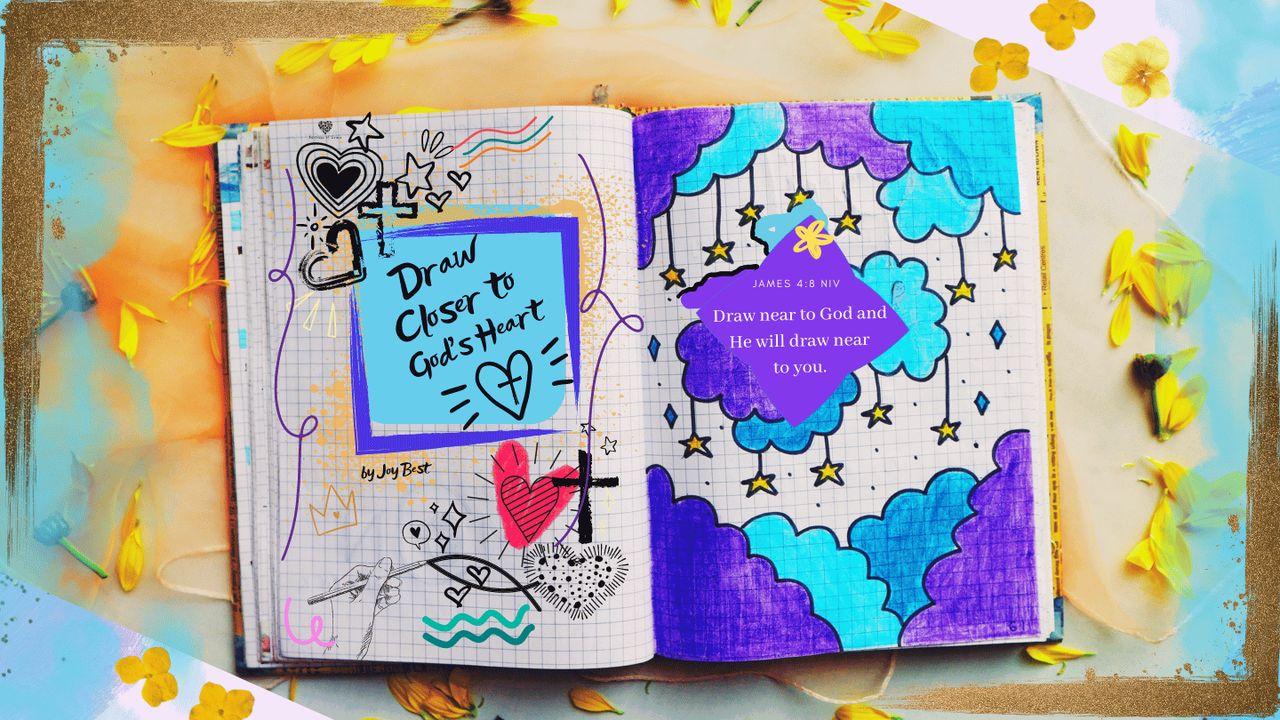 Draw
Closer to
God's Heart
by Joy Best
JAMES 4:8 NIV
Draw near to God and
He will draw near
to you.